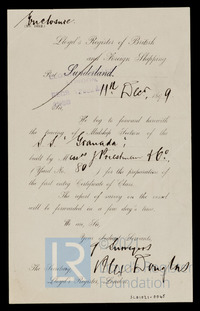 Enclosure
Lloyd's Register of British
and Foreign Shipping
Port Sunderland.
11th Decr 1879
Sir
We beg to forward herewith
the tracing of Midship Section of the
S.S. "Granada"
built by Messrs J. Priestman & Co.
Yard No. 80 for the preparation of the
first entry Certificate of Class.
The report of survey on the vessel
will be forwarded in a few day's time.
We are, Sir,
Your obedient Servants,
Surveyors
Alex Douglas
The Secretary
Lloyd's Register, London